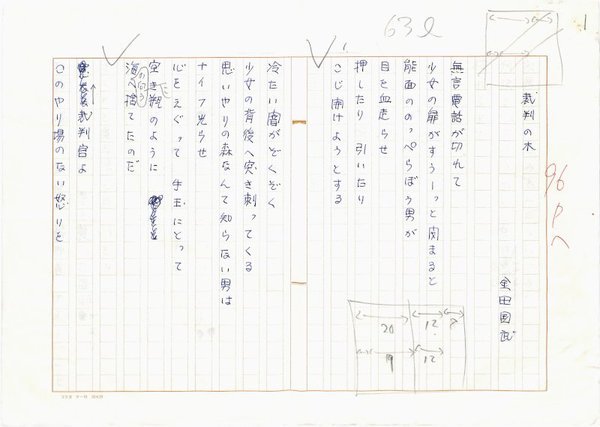 1
63ℓ
96pへ
裁判の木
金田国武
無言電話が切れて
少女の扉がすうーっと閉まると
能面ののっぺらぼう男が
目を血走らせ
押したり 引いたり
こじ開けようとする
冷たい闇がぞくぞく
少女の背後へ突き刺ってくる
思いやりの森なんて知らない男は
ナイフ光らせ
心をえぐって 手玉にとって
空き瓶のように
海へ捨てたのだ
裁判官よ
このやり場のない怒りを
20
12
19
12